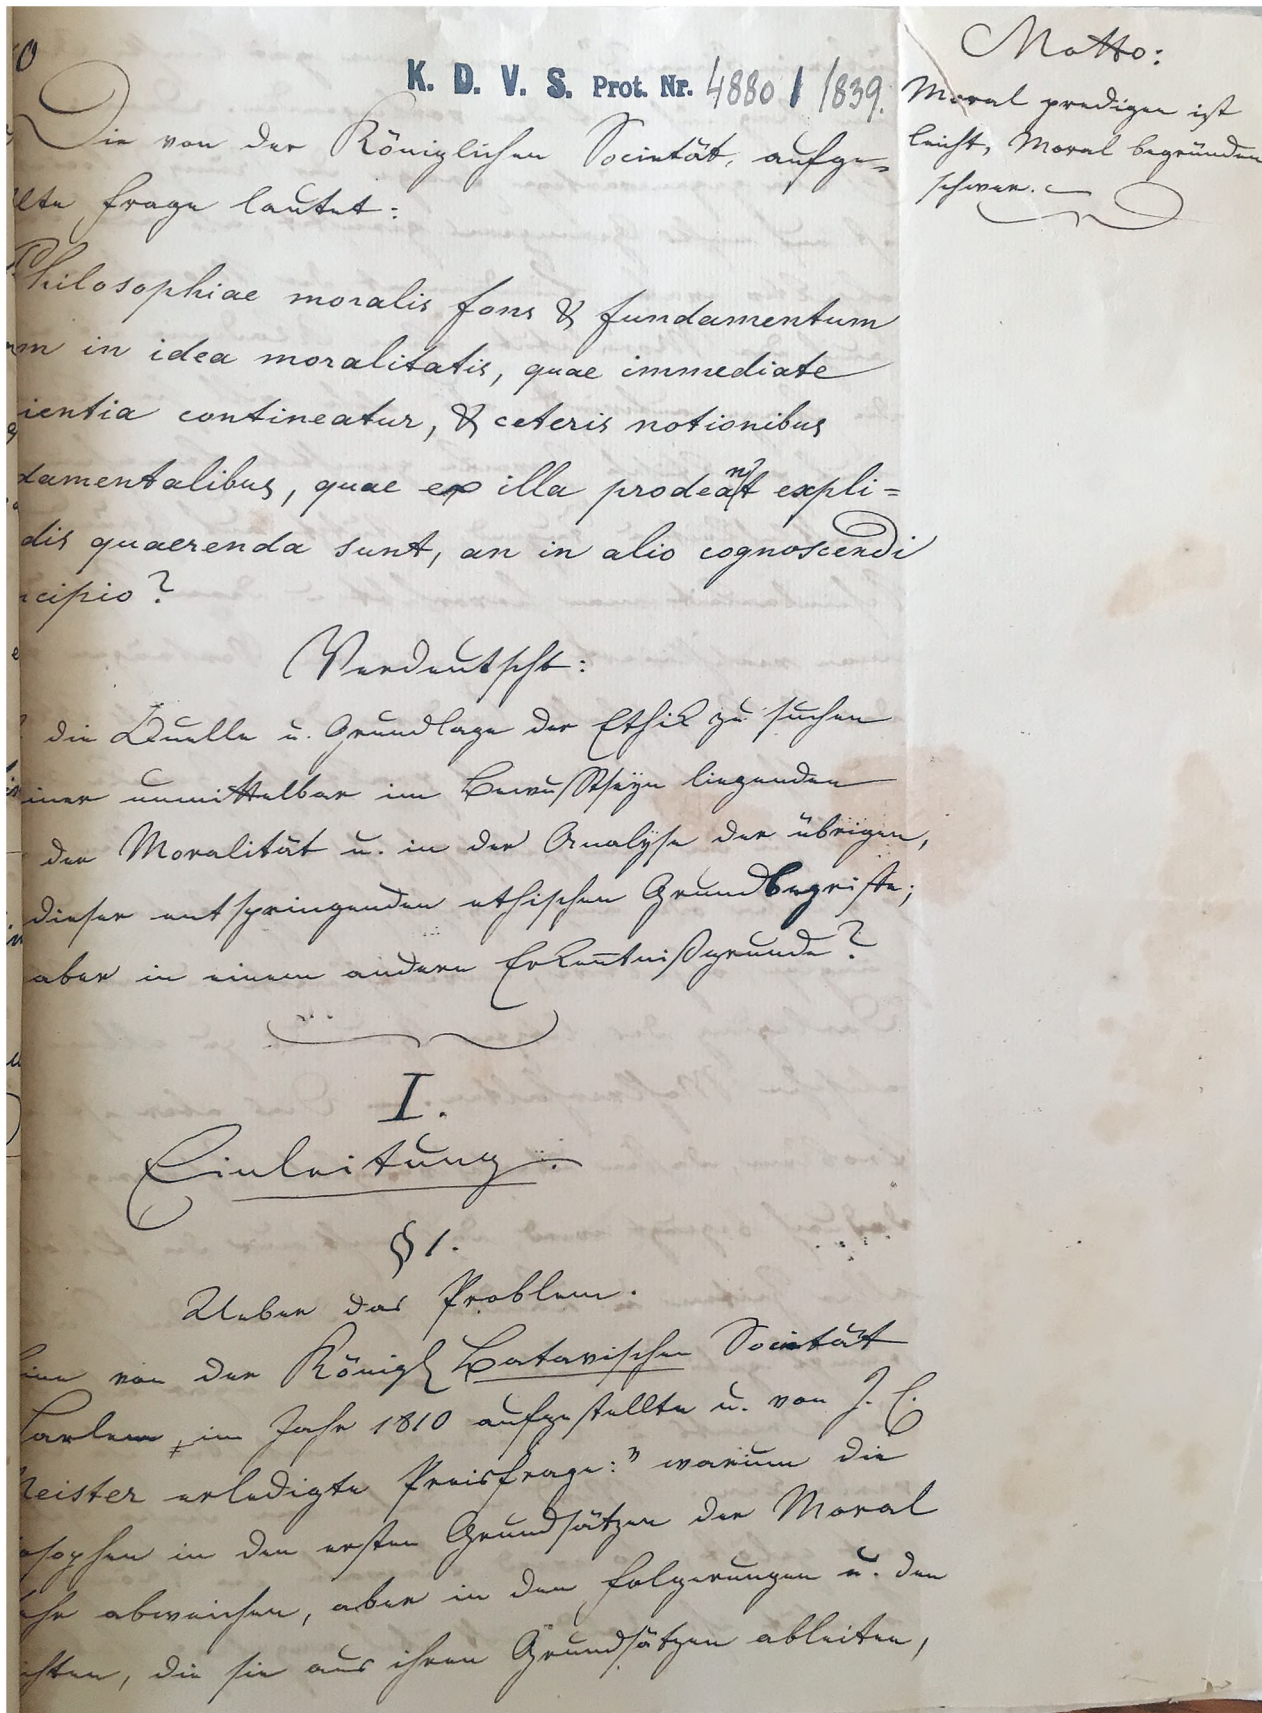 K. D. V. S. Prot. Nr. 4880 / 1839.
Die von der Königlichen Societät, aufge=
lte Frage lautet:
Philosophiae moralis fons & fundamentum
m in idea moralitatis, quae immediate
ientia contineatur, & ceteris notionibus
damentalibus, quae ex illa prodeant expli=
dis quaerenda sunt, an in alio cognoscendi
cipio?
Verdeutscht:
die Quelle u. Grundlage der Ethik zu suchen
iner unmittelbar im Bewußtseyn liegenden
der Moralität u. in der Analyse der übrigen,
dieser entspringenden ethischen Grundbegriffe;
aber in einem andern Erkenntnißgrunde?
I.
Einleitung.
§ 1.
Ueber das Problem.
ine von der Königl Batavischen Societät
Harlem, im Jahr 1810 aufgestellte u. von J. C.
Meister erledigte Preisfrage: "warum die
osophen in den ersten Grundsätzen der Moral
ehr abweichen, aber in den Folgerungen u. den
ichten, die sie aus ihren Grundsätzen ableiten,
Motto:
Moral predigen ist
leicht, Moral begründen
schwer.